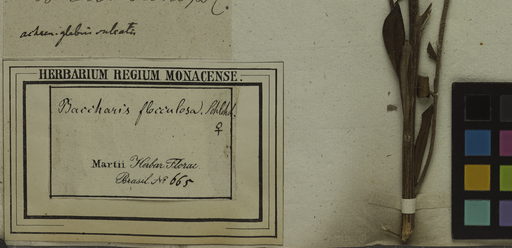 achaen. glabris sulcatis
HERBARIUM REGIUM MONACENSE.
Baccharis flocculosa.
♀
Martii Herbar. Florae
Brasil. No 665